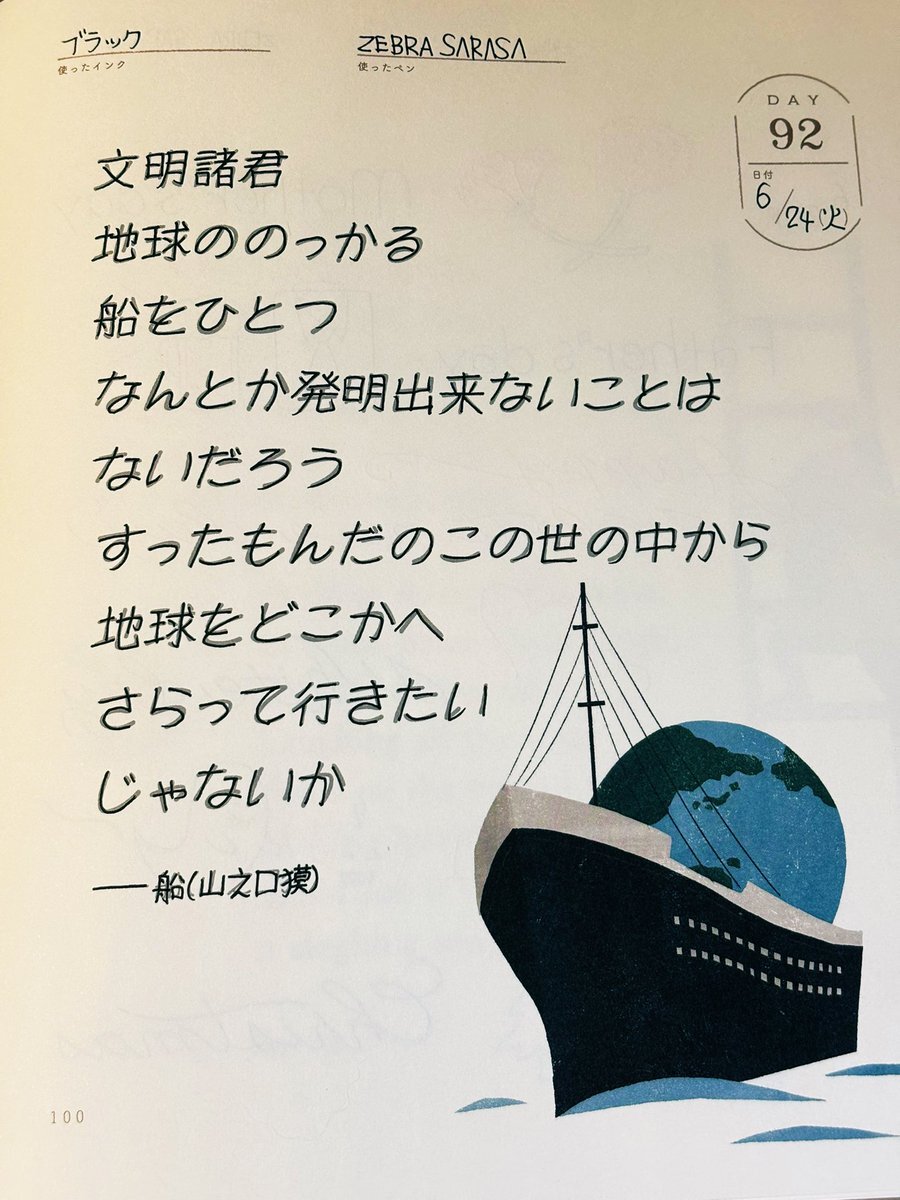 ブラック
使ったインク
ZEBRA SARASA
使ったペン
DAY
92
日付
6/24(火)
文明諸君
地球ののっかる
船をひとつ
なんとか発明出来ないことは
ないだろう
すったもんだのこの世の中から
地球をどこかへ
さらって行きたい
じゃないか
——船(山之口獏)
100